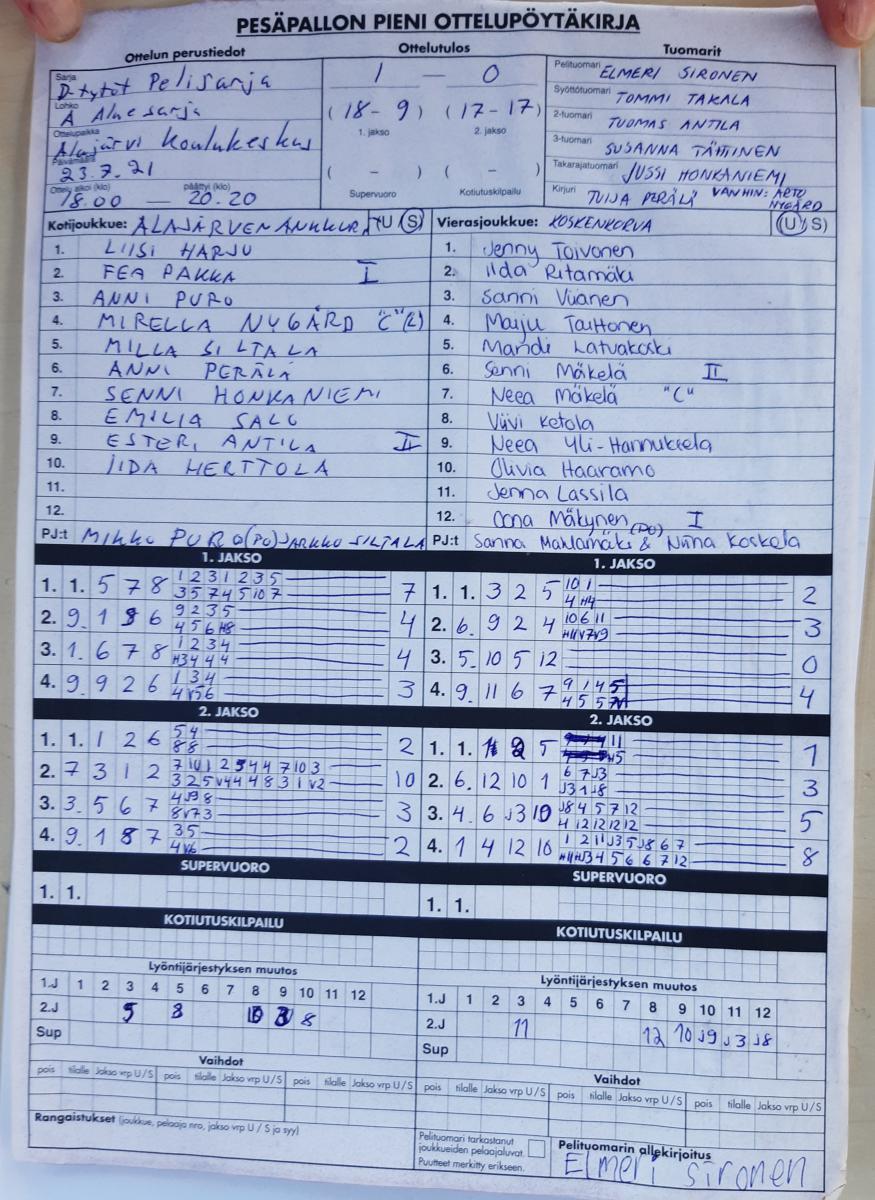 PESÄPALLON PIENI OTTELUPÖYTÄKIRJA
Ottelun perustiedot Ottelutulos Tuomarit
Sarja D-tytöt Pelisarja
Lohko A Aluesarja
Ottelupaikka Alajärvi Koulukeskus
Päivämäärä 23.7.21
Ottelu alkoi (klo) 18.00 — päättyi (klo) 20.20
1 — 0
(18 - 9) (17-17)
1. jakso 2. jakso
( - ) ( - )
Supervuoro Kotiutuskilpailu
Pelituomari ELMERI SIRONEN
Syöttötuomari TOMMI TAKALA
2-tuomari TUOMAS ANTILA
3-tuomari SUSANNA
Takarajatuomari JUSSI HONKANIEMI
Kirjuri TUIJA PERÄLÄ VANHIN: ARTO NYGÅRD
Kotijoukkue: ALAJÄRVEN ANKKURIT (U S)
1. LIISI HARJU
2. FEA PAKKA I
3. ANNI PURO
4. MIRELLA NYGÅRD "C" (L)
5. MILLA SILTALA
6. ANNI PERÄLÄ
7. SENNI HONKANIEMI
8. EMILIA SALO
9. ESTERI ANTILA II
10. IIDA HERTTOLA
11.
12.
PJ:t MIKKO PURO (PO) JARKKO SILTALA
Vierasjoukkue: KOSKENKORVA (U S)
1. Jenny Toivonen
2. Iida Ritamäki
3. Sanni Viianen
4. Maiju
5. Mandi Latvakoski
6. Senni Mäkelä II
7. Neea Mäkelä "C"
8. Viivi Ketola
9. Neea Yli-Hannuksela
10. Olivia Haaramo
11. Jenna Lassila
12. Oona Mäkynen I
PJ:t Sanna (PO) & Niina Koskela
1. JAKSO
1. 1. 5 7 8 1 2 3 1 2 3 5 7
3 5 7 4 5 10 7
2. 9. 1 6 9 2 3 5 4
4 5 6 H8
3. 1. 6 7 8 1 2 3 4 4
H3 4 4 4
4. 9. 9 2 6 1 3 4 3
4 V5 6
1. JAKSO
1. 1. 3 2 5 10 1 2
4 H4
2. 6. 9 2 4 10 6 11 3
H11 V7 V9
3. 5. 10 5 12 0
4. 9. 11 6 7 9 1 4 5 4
4 5 5
2. JAKSO
1. 1. 1 2 6 5 4 2
8 8
2. 7 3 1 2 7 10 1 2 3 4 4 7 10 3 10
3 2 5 V4 4 4 8 3 1 V2
3. 3. 5 6 7 4 J9 8 3
8 V7 3
4. 9. 1 8 7 3 5 2
4 V6
2. JAKSO
1. 1. 5 11 1
H5
2. 6. 12 10 1 6 7 J3 3
J3 1 J8
3. 4. 6 J3 10 J8 4 5 7 12 5
4 12 12 12 12
4. 1 4 12 10 1 2 11 J3 5 J8 6 7 8
H11 HJ3 4 5 6 6 7 12
SUPERVUORO
1. 1.
SUPERVUORO
1. 1.
KOTIUTUSKILPAILU
KOTIUTUSKILPAILU
Lyöntijärjestyksen muutos
1.J 1 2 3 4 5 6 7 8 9 10 11 12
2.J 5 3 10 8
Sup
Lyöntijärjestyksen muutos
1.J 1 2 3 4 5 6 7 8 9 10 11 12
2.J 11 12 10 J9 J3 J8
Sup
Vaihdot
pois tilalle Jakso vrp U/S pois tilalle Jakso vrp U/S pois tilalle Jakso vrp U/S
Vaihdot
pois tilalle Jakso vrp U/S pois tilalle Jakso vrp U/S pois tilalle Jakso vrp U/S
Rangaistukset (joukkue, pelaaja nro, jakso vrp U / S ja syy)
Pelituomari tarkastanut
joukkueiden pelaajaluvat.
Puutteet merkitty erikseen.
Pelituomarin allekirjoitus
Elmeri Sironen